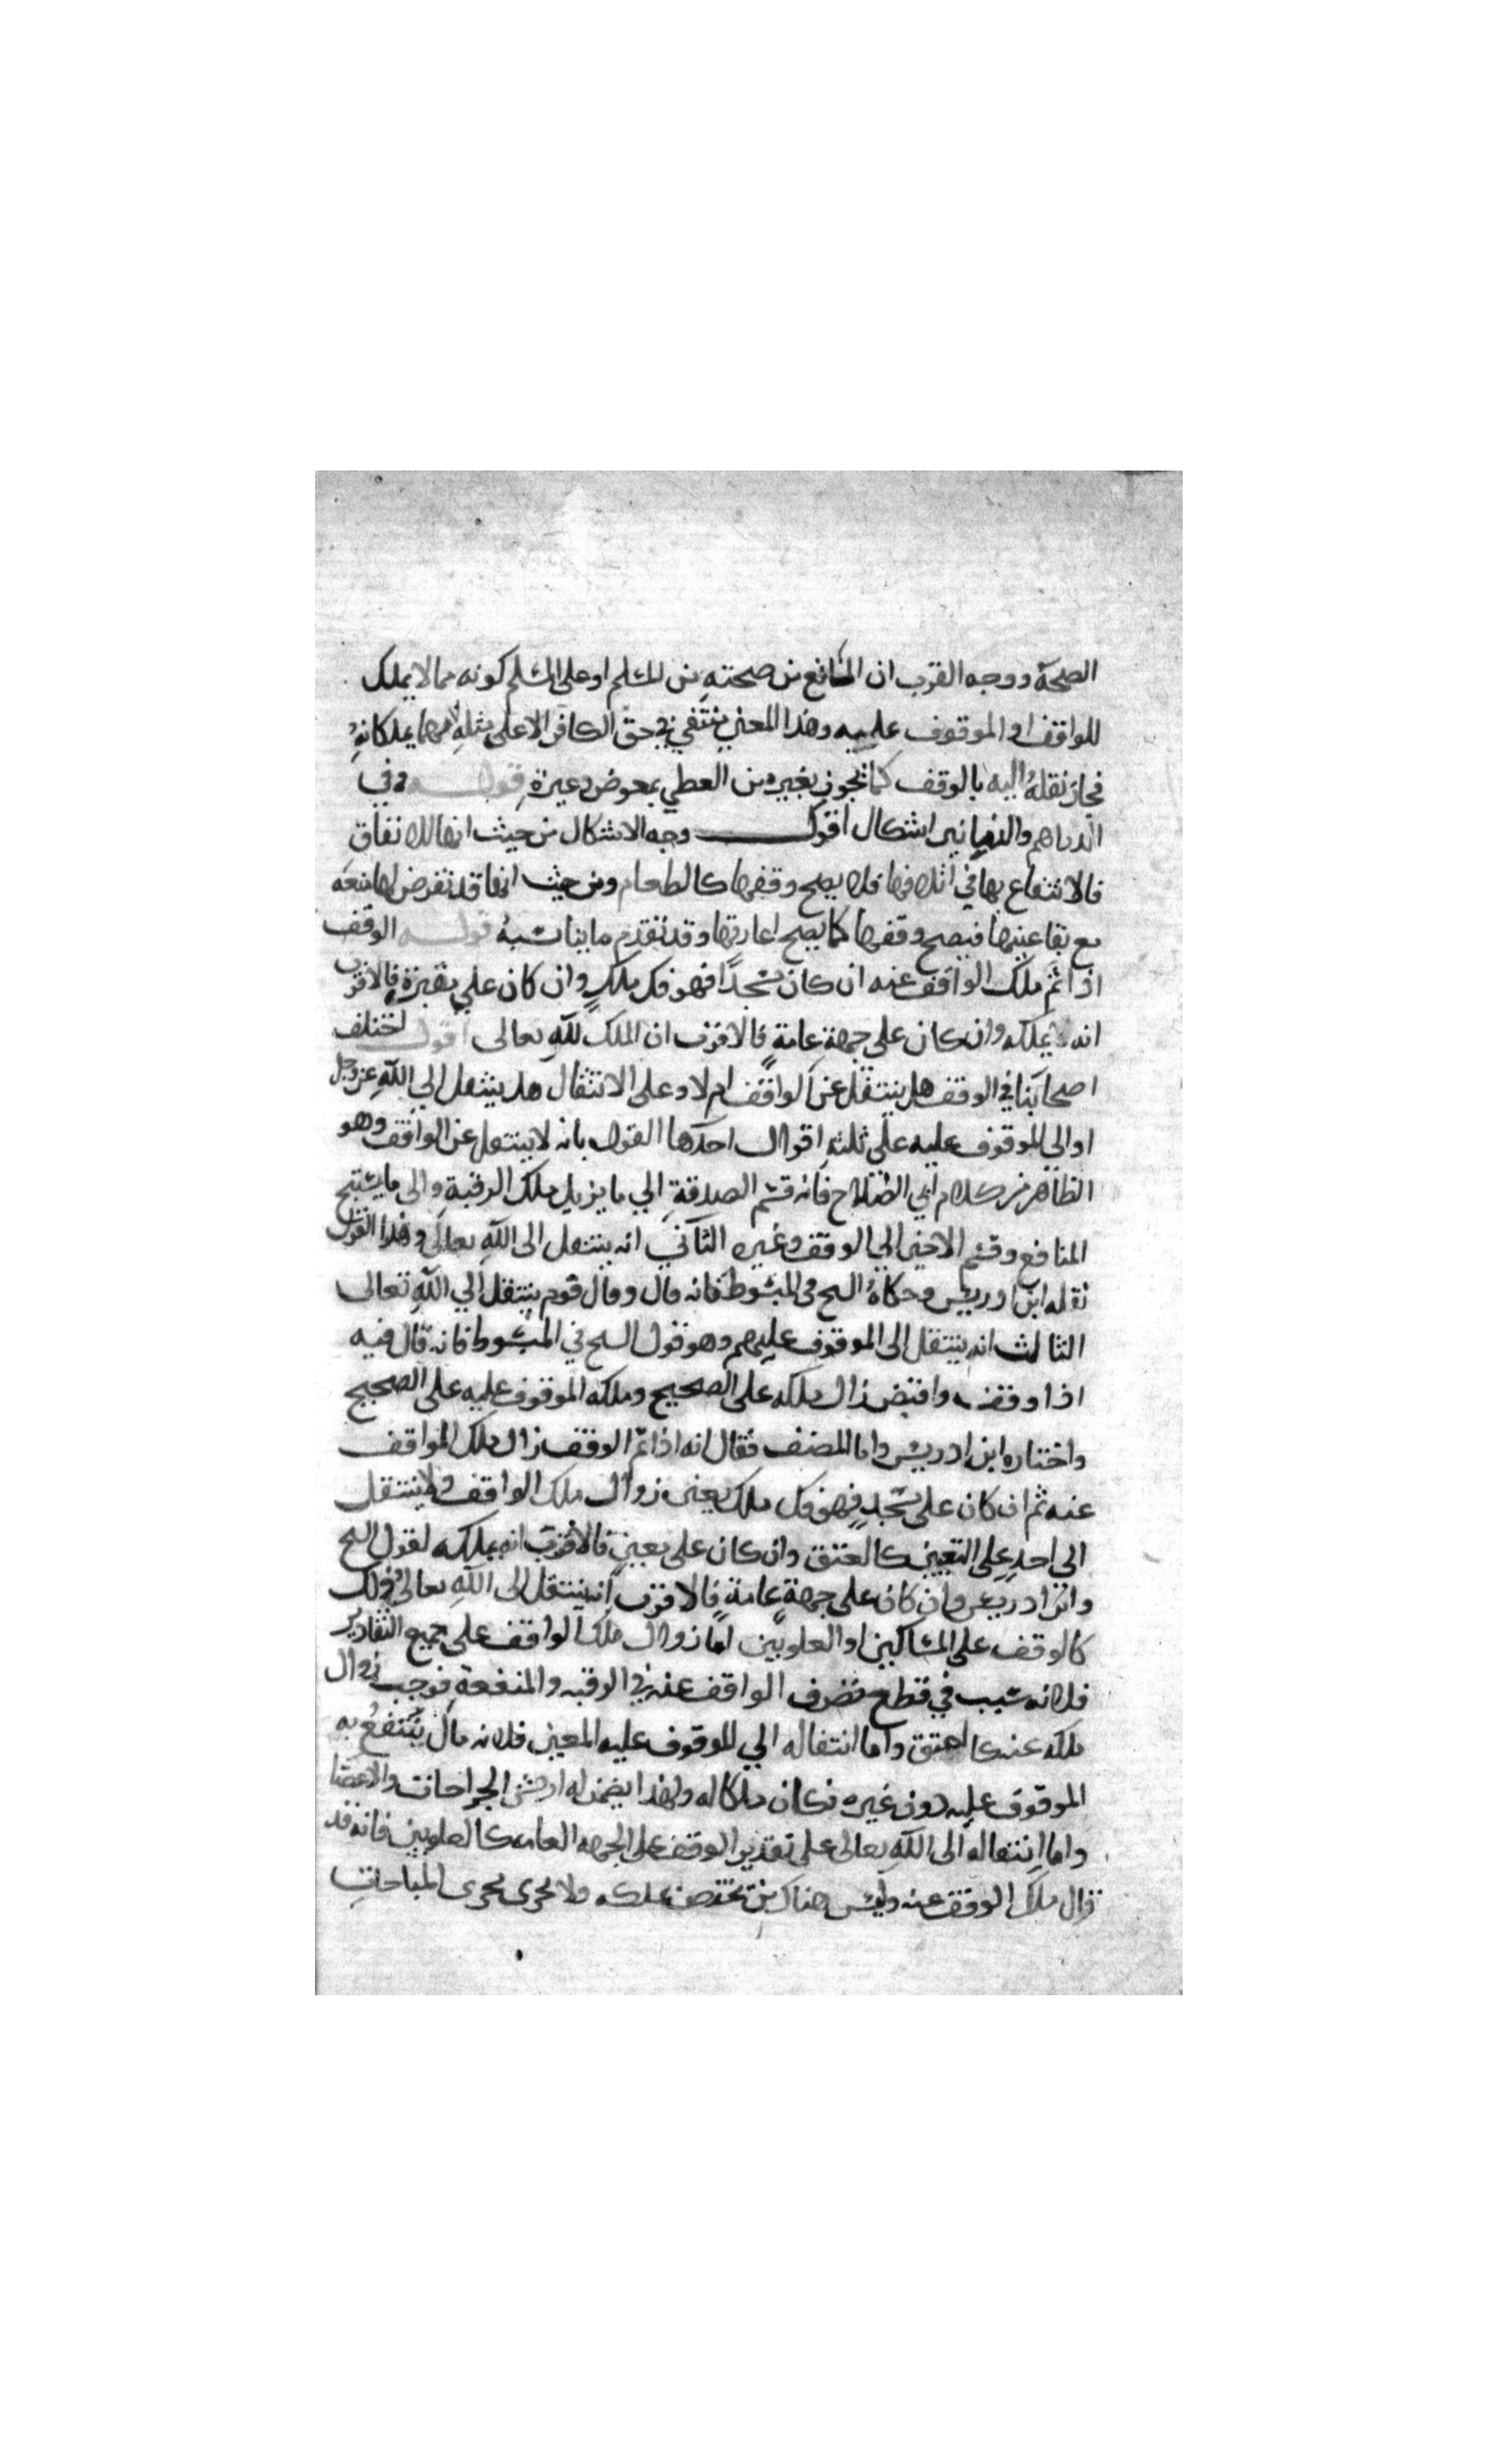 الصحة ووجه القرب ان المانع من صحته من المسلم او على المسلم كونه مما لا يملك
للواقف او الموقوف عليه وهذا المعنى ينتفي في حق الكافر الاعلى مثله لانهما يملكانه
فجاز نقله اليه بالوقف كما يجوز بغيره من العطي بعوض وغيره قوله وفي
الدراهم والدنانير اشكال اقول وجه الاشكال من حيث انها للانفاق
فالانتفاع بها في اتلافها فلا يصح وقفها كالطعام ومن حيث انها قد تفرض لها منفعة
مع بقا عينها فيصح وقفها كما يصح اعارتها وقد تقدم ما يناسبه قوله الوقف
اذا تم ملك الواقف عنه ان كان مسجدا فهو فك ملك وان كان على فالاقرب
انه يملكه وان كان على جهة عامة فالاقرب ان الملك لله تعالى اقول اختلف
اصحابنا في الوقف هل ينتقل عن الواقف ام لا وعلى الانتقال هل ينتقل الى الله عز وجل
او الى الموقوف عليه على ثلثة اقوال احدها القول بانه لا ينتقل عن الواقف وهو
الظاهر من كلام ابي الصلاح فانه قسم الصدقة الى ما يزيل ملك الرقبة والى ما يستبيح
المنافع وقسم الاخير الى الوقف وغيره الثاني انه ينتقل الى الله تعالى وهذا القول
نقله ابن ادريس وحكاه السح في المبسوط فانه قال وقال قوم ينتقل الى الله تعالى
الثالث انه ينتقل الى الموقوف عليهم وهو قول السح في المبسوط فانه قال فيه
اذا وقف واقبض زال ملكه على الصحيح وملكه الموقوف عليه على الصحيح
واختاره ابن ادريس واما المصنف فقال انه اذا تم الوقف زال ملك الواقف
عنه ثم ان كان على مسجد فهو فك ملك يعني زوال ملك الواقف ولا ينتقل
الى احد على التعيين كالعتق وان كان على معين فالاقرب انه يملكه لقول السح
وابن ادريس وان كان على جهة عامة فالاقرب انه ينتقل الى الله تعالى وذلك
كالوقف على المساكين او العلويين اما زوال ملك الواقف على جميع التقادير
فلانه سبب في قطع تصرف الواقف عنه في الرقبه والمنفعة فوجب زوال
ملكه عنه كالعتق واما انتقاله الى الموقوف عليه المعين فلانه مال ينتفع به
الموقوف عليه دون غيره فكان ملكا له ولهذا يضمن له ارش الجراحات والاعضا
واما انتقاله الى الله تعالى على تقدير الوقف على الجهه العامه كالعلويين فانه قد
زال ملك الوقف عنه وليس هناك من يختص بملكه ولا يجرى مجرى المباحات